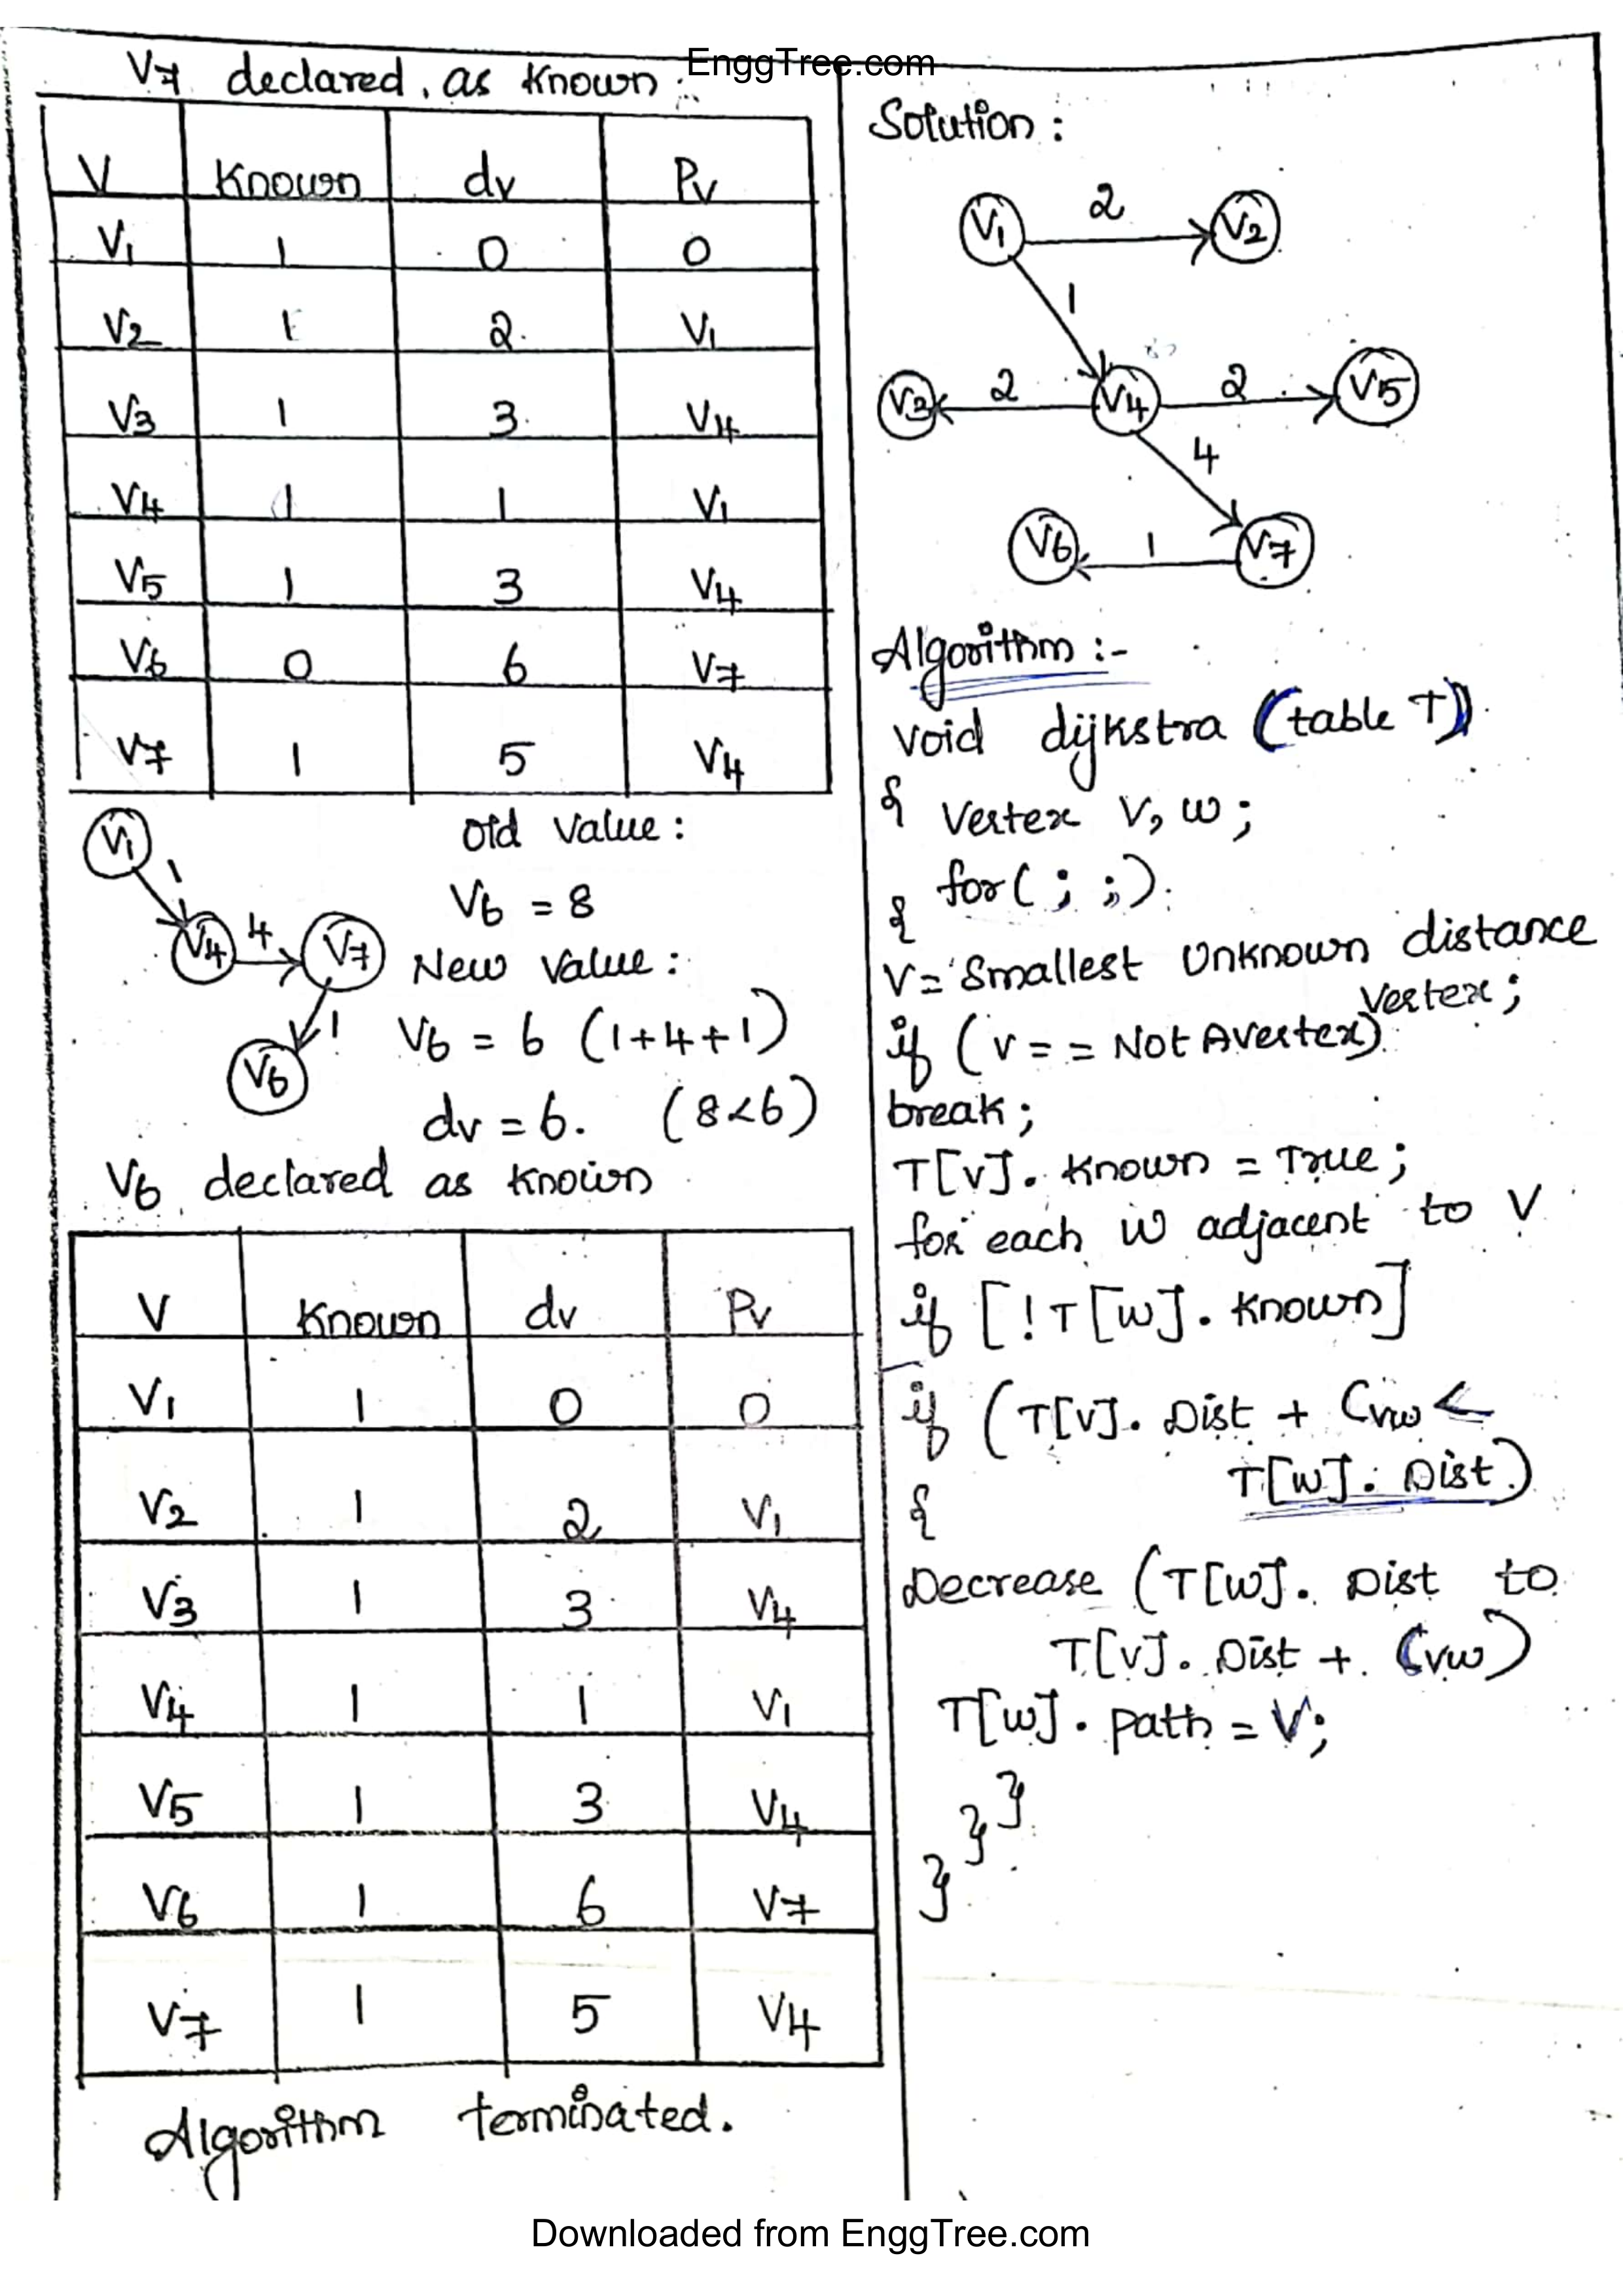 EnggTree.com
V7 declared as Known :
V Known dv Pv
V1 1 0 0
V2 1 2 V1
V3 1 3 V4
V4 1 1 V1
V5 1 3 V4
V6 0 6 V7
V7 1 5 V4
V1
1
V4 4 V7
1
V6
Old Value :
V6 = 8
New Value :
V6 = 6 (1+4+1)
dv = 6. (8<6)
V6 declared as Known
V Known dv Pv
V1 1 0 0
V2 1 2 V1
V3 1 3 V4
V4 1 1 V1
V5 1 3 V4
V6 1 6 V7
V7 1 5 V4
Algorithm terminated.
Solution :
V1 2 V2
1
V3 2 V4 2 V5
4
V6 1 V7
Algorithm :-
Void dijkstra (table T)
{ Vertex V, w ;
for( ; ;)
{
V = Smallest Unknown distance
Vertex ;
if (v = = Not A vertex)
break ;
T[v]. Known = True ;
for each w adjacent to V
if [!T[w]. Known]
if (T[v]. Dist + Cvw <
T[w]. Dist)
{
Decrease (T[w]. Dist to
T[v]. Dist + Cvw)
T[w]. path = V;
}
}
}
Downloaded from EnggTree.com